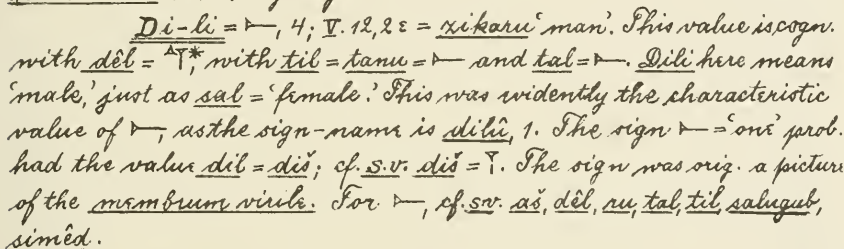 Di-li = 𒀸, 4; V. 12, 2 ε = zikaru 'man'. This value is cogn.
with dêl = *, with til = tanu = 𒀸 and tal = 𒀸. Dili here means
'male,' just as sal = 'female.' This was evidently the characteristic
value of 𒀸, as the sign-name is dilû, 1. The sign 𒀸 = 'one' prob.
had the value dil = diš; cf. s.v. diš = 𒁹. The sign was orig. a picture
of the membrum virile. For 𒀸, cf. s.v. aš, dêl, ru, tal, til, salugub,
simêd.